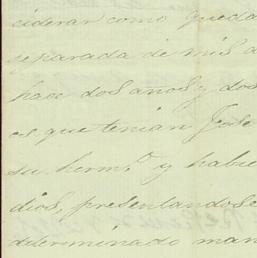 ciderar como queda
separada de mis
hace dos años y dos
os que tenian Jose
su herm.º y habie
dios, presentandose
determinado man